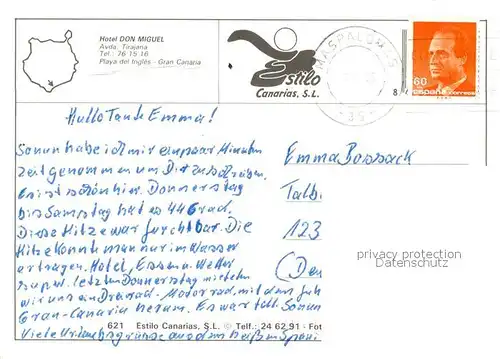 Hotel DON MIGUEL
Avda. Tirajana
Tel.: 76 15 16
Playa del Inglés - Gran Canaria
Estilo
Canarias, S.L.
MASPALOMAS
35
60
españa correos
8
Hallo Tante Emma!
So nun habe ich mir ein paar Minuten
Zeit genommen um Dir zu schreiben.
Es ist schön hier. Donnerstag
bis Samstag hat es 44 Grad.
Diese Hitze war furchtbar. Die
Hitze konnte man nur im Wasser
ertragen. Hotel, Essen u. Wetter
super. Letzten Donnerstag mieteten
wir uns ein Dreirad-Motorrad. mit dem
Gran-Canaria herum. Es war toll. So nun
Viele Urlaubsgrüsse aus dem heißen Spani
Emma Bossack
Talb.
123
(Den
privacy protection
Datenschutz
621 Estilo Canarias, S.L. © Telf.: 24 62 91 - Fot